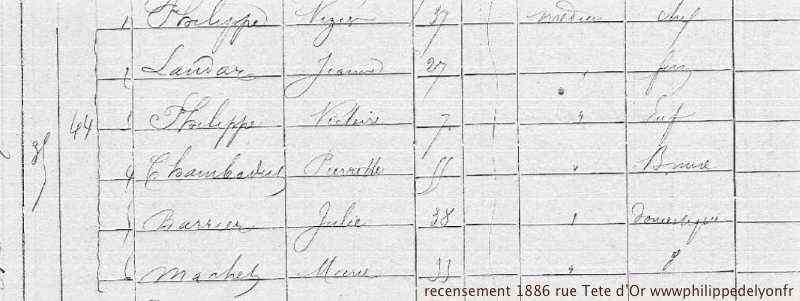 1 Philippe Nizier 37 médecin chef
2 Landar Jeanne 27 "
44 3 Philippe Victoire 7 "
4 Pierrette 55 "
5 Barrier Julie 38 " domestique
6 Machet Marie "
recensement 1886 rue Tete d'Or www.philippedelyonfr